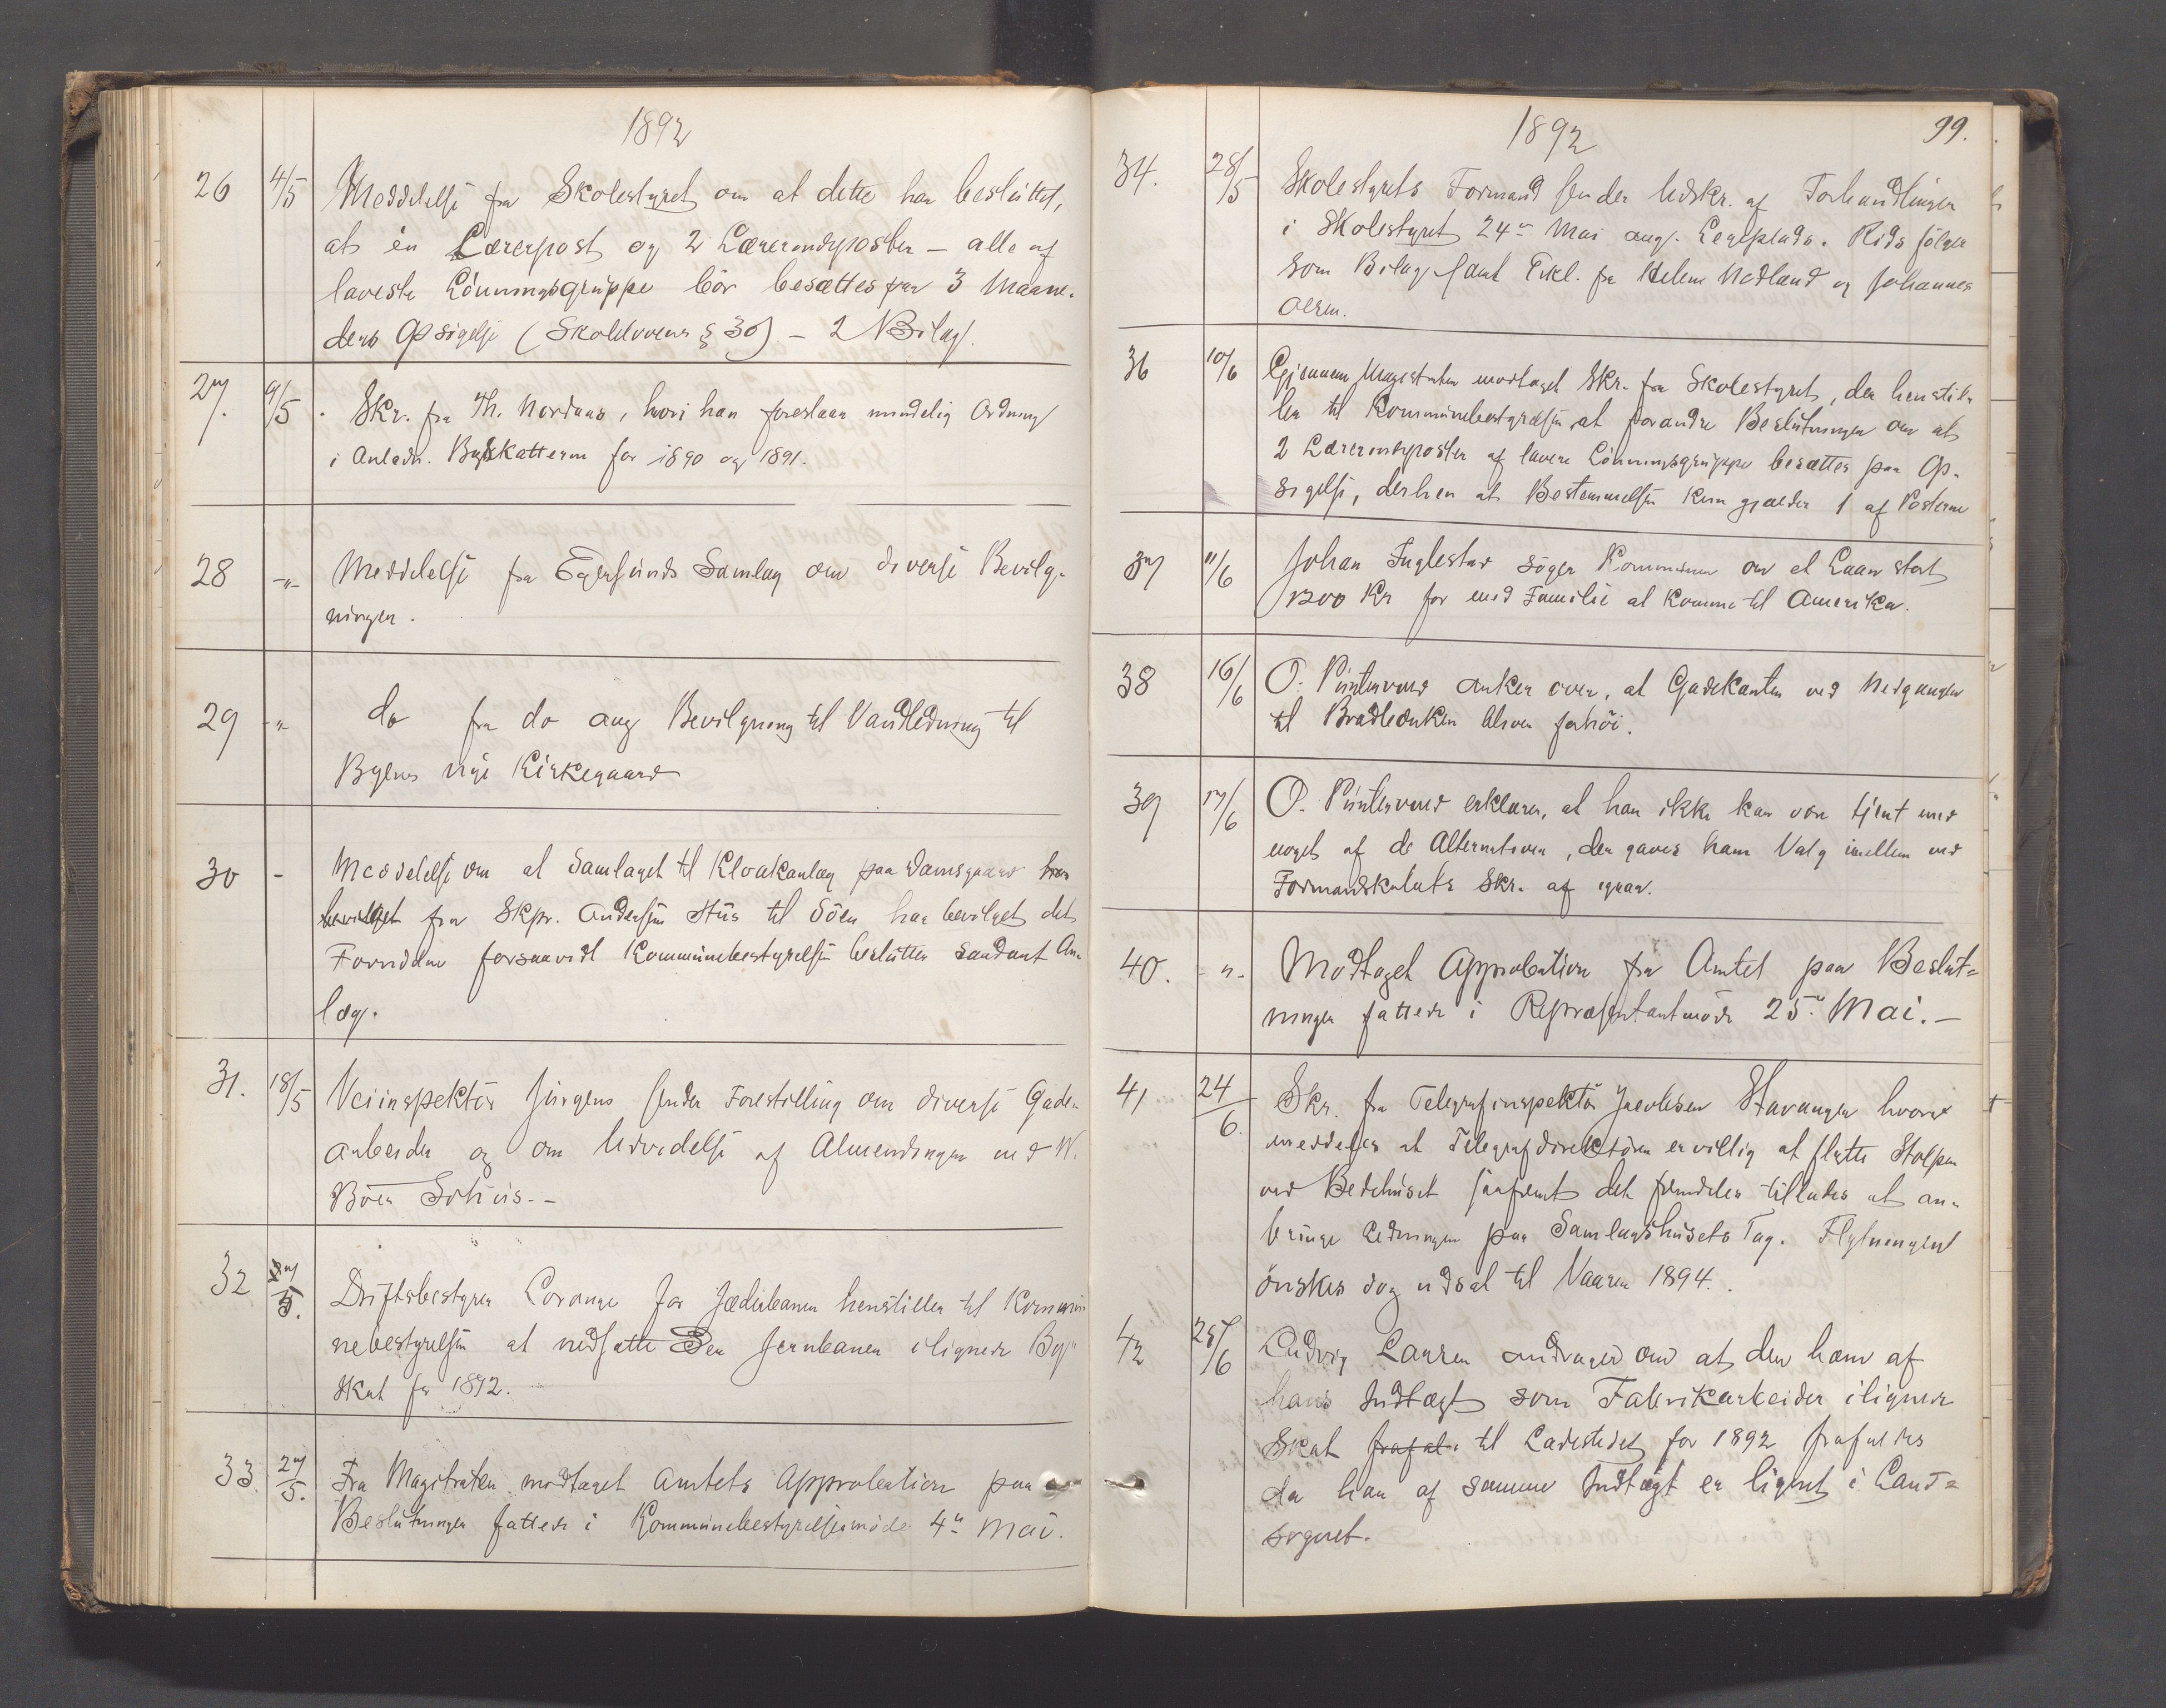 1892
26 4/5 Meddelelse fra Skolestyret om at dette har besluttet,
at én Lærerpost og 2 Lærerindeposter – alle af
laveste Lönningsgruppe bör besættes paa 3 Maane-
ders Opsigelse (Skolelovens § 30) – 2 Bilag.
27. 9/5 Skr. fra Th. Nordaas, hvori han foreslaar mindelig Ordning
i Anledn. Byskatterne for 1890 og 1891.
28 -"- Meddelelse fra Egersunds Samlag om diverse Bevilg-
ninger.
29 -"- do fra do ang Bevilgning til Vandledning til
Byens nye Kirkegaard
30 - Meddelelse om at Samlaget til Kloakanlæg paa Damsgaard har
bevilget fra Skpr. Andersens Hus til Söen har bevilget det
Fornödne forsaavidt Kommunebestyrelsen beslutter saadant An-
læg.
31. 18/5 Veiinspektör Jürgens sender Forestilling om diverse Gade-
arbeider og om Udvidelse af Almendingen ved W.
Böen Söhus. -
32 27/5. Driftsbestyrer Lorange for Jæderbanen henstiller til Kommu-
nebestyrelsen at nedsætte den Jernbanen ilignede By-
skat for 1892.
33. 27/5. Fra Magistraten modtaget Amtets Approbation paa
Beslutninger fattede i Kommunebestyrelsesmöde 4de Mai.
1892 99.
34. 28/5 Skolestyrets Formand sender Udskr. af Forhandlinger
i Skolestyret 24de Mai ang. Legeplads. Rids fölger
som Bilag samt Erkl. fra Helene Nedland og Johannes
Olsen.
36 10/6 Gjennem Magistraten modtaget Skr. fra Skolestyret, der henstil-
ler til Kommunebestyrelsen at forandre Beslutningen om at
2 Lærerindeposter af lavere Lönningsgruppe besættes paa Op-
sigelse, derhen at Bestemmelsen kun gjælder 1 af Posterne
37 11/6 Johan Fuglestad söger Kommunen om et Laan stort
1200 Kr for med Familie at komme til Amerika.
38 16/6 O. Puntervold anker over, at Gadekanten ved Nedgangen
til Bradbænken bliver forhöi.
39 17/6 O. Puntervold erklærer, at han ikke kan være tjent med
noget af de Alternativer, der gaves ham Valg imellem ved
Formandskabets Skr. af igaar.
40. -"- Modtaget Approbation fra Amtet paa Beslut-
ninger fattede i Repræsentantmöde 25de Mai. –
41 24/6. Skr. fra Telegrafinspektör Jacobsen Stavanger hvori
meddeles at Telegrafdirektören er villig at flytte Stolpen
ved Bedehuset saafremt det fremdeles tillades at an-
bringe Ledningen paa Samlagshusets Tag. Flytningen
önskes dog udsat til Vaaren 1894.
42 25/6 Ludvig Larsen andrager om at den ham af
hans Indtægt som Fabrikarbeider ilignede
Skat til Ladestedet for 1892 frafaldes
da han af samme Indtægt er lignet i Land-
sognet.